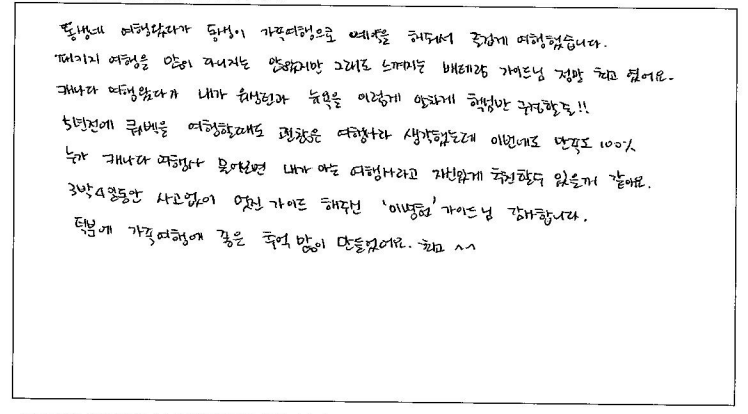 동생네 여행왔다가 동생이 가족여행으로 예약을 해줘서 즐겁게 여행했습니다.
패키지 여행을 많이 다니지는 않았지만 그래도 느껴지는 베테랑 가이드님 정말 최고 였어요.
캐나다 여행왔다가 내가 워싱턴과 뉴욕을 이렇게 알차게 핵심만 구경할줄!!
5년전에 퀘벡을 여행할때도 괜찮은 여행사라 생각했는데 이번에도 만족도 100%
누가 캐나다 여행사 물어보면 내가 아는 여행사라고 자신있게 추천할수 있을꺼 같아요.
3박4일동안 사고없이 멋진 가이드 해주신 '이병헌' 가이드님 감사합니다.
덕분에 가족여행에 좋은 추억 많이 만들었어요. 최고 ^^